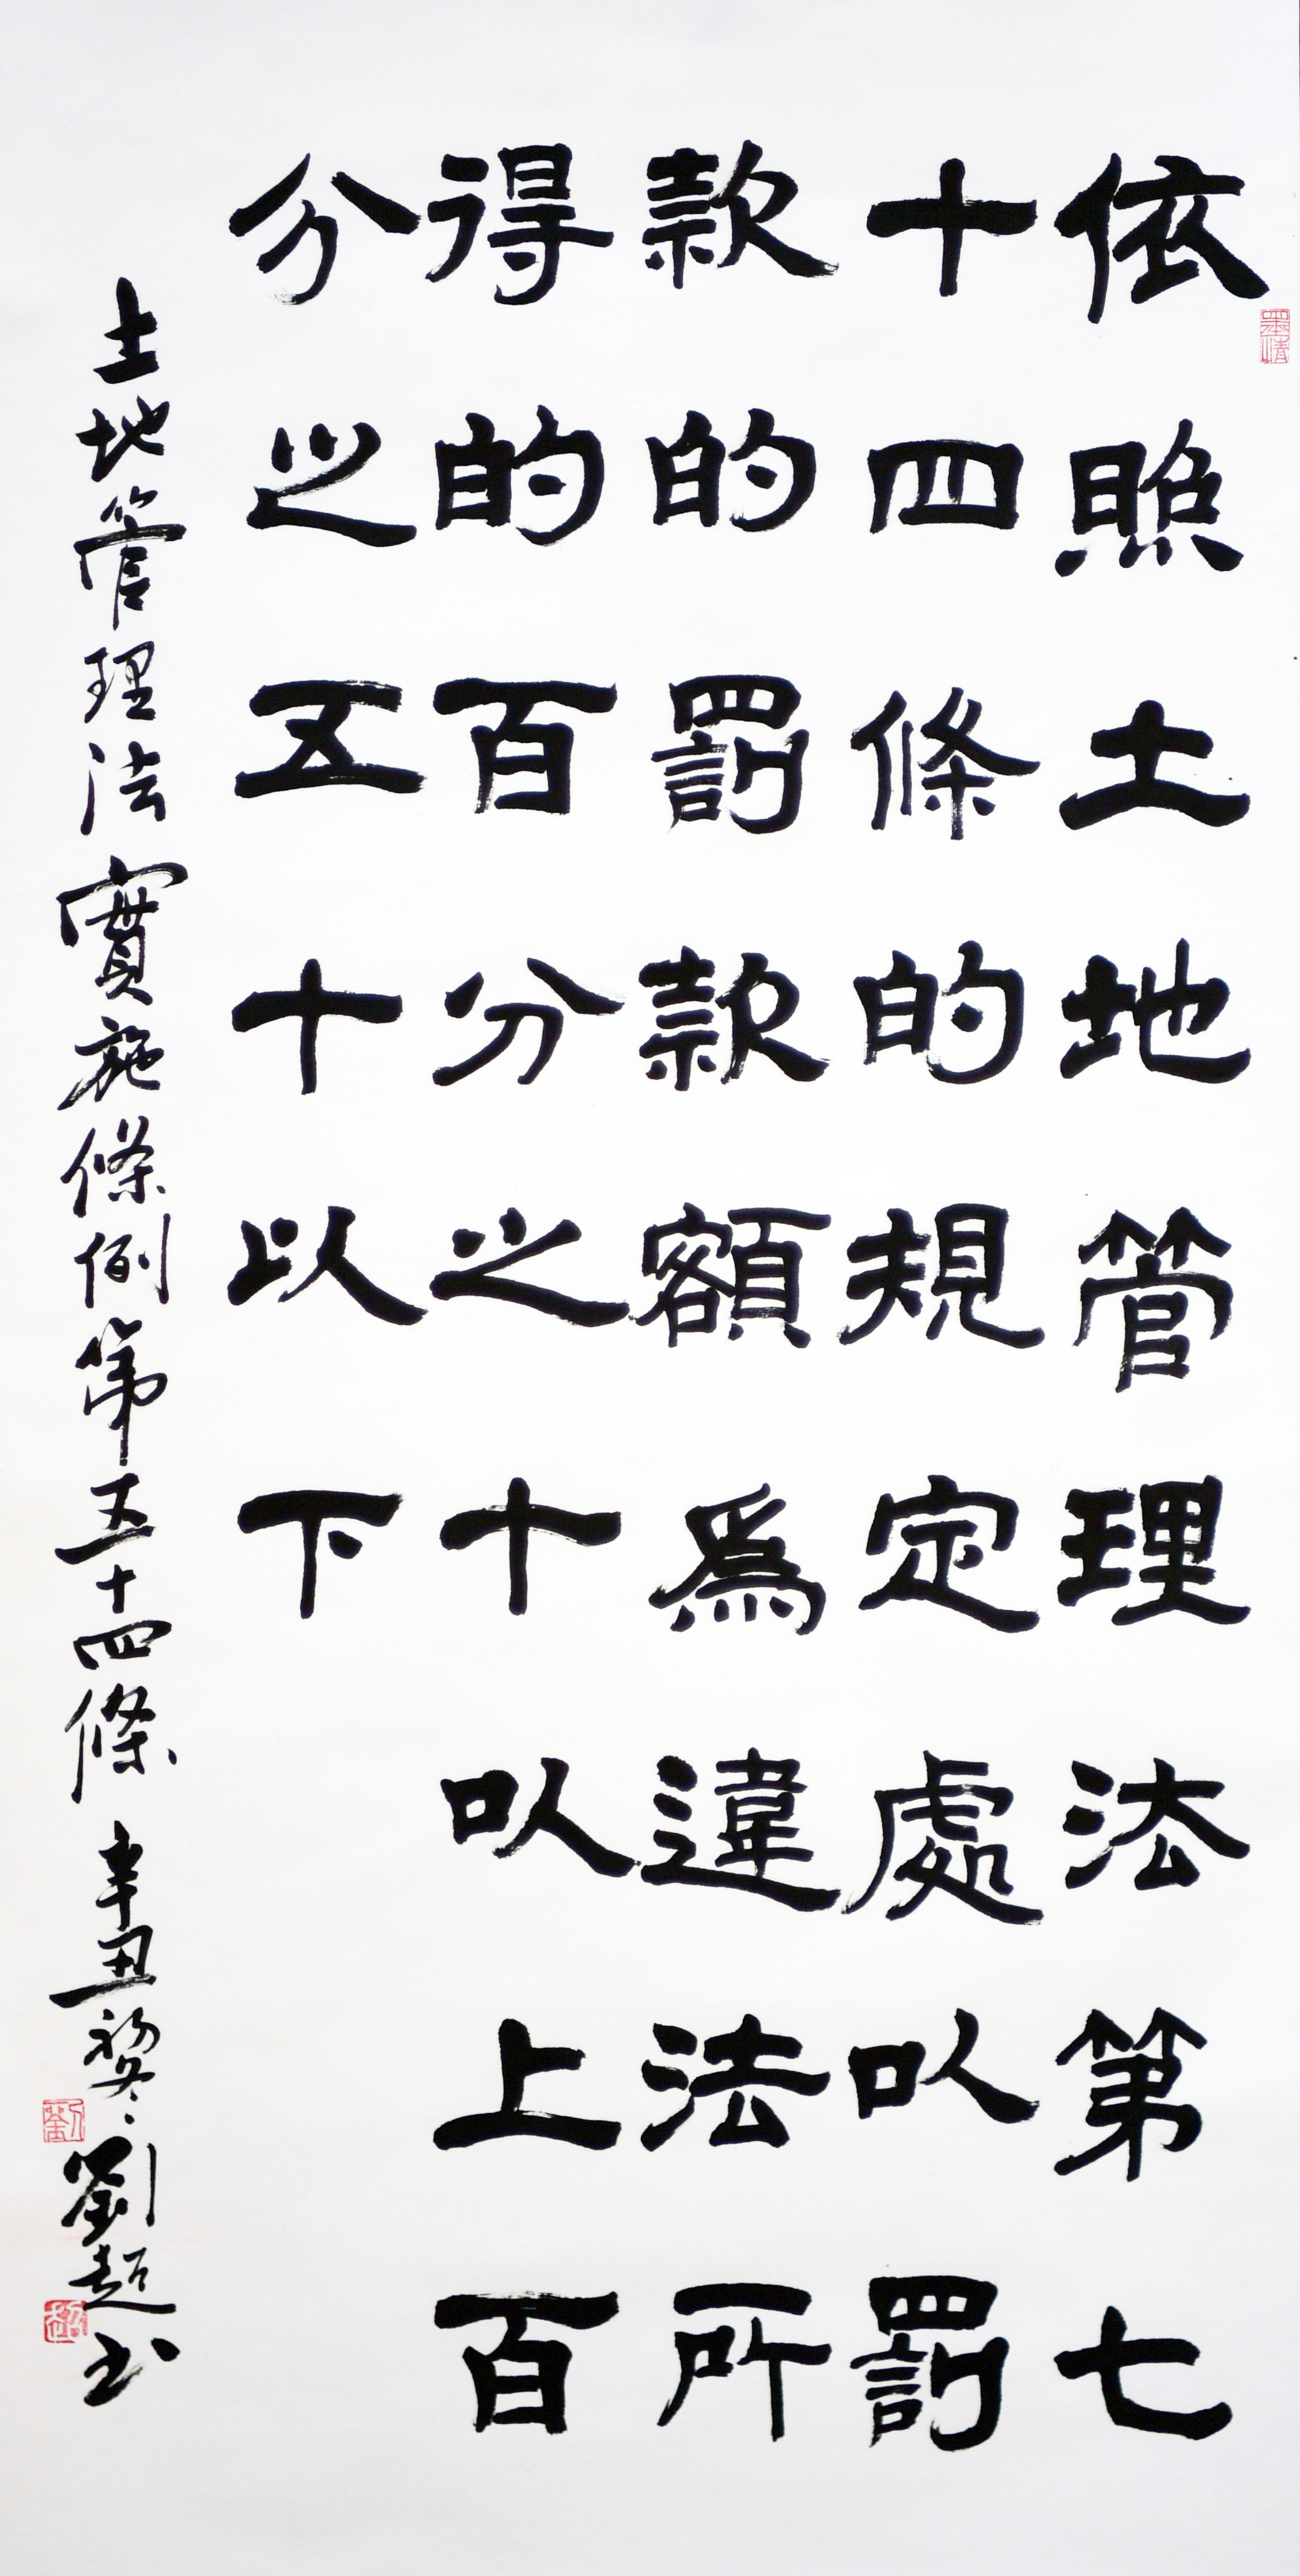 依照土地管理法第七
十四條的規定處以罰
款的罰款額為違法所
得的百分之十以上百
分之五十以下
土地管理法實施條例第五十四條 辛丑初冬 劉超书
劉